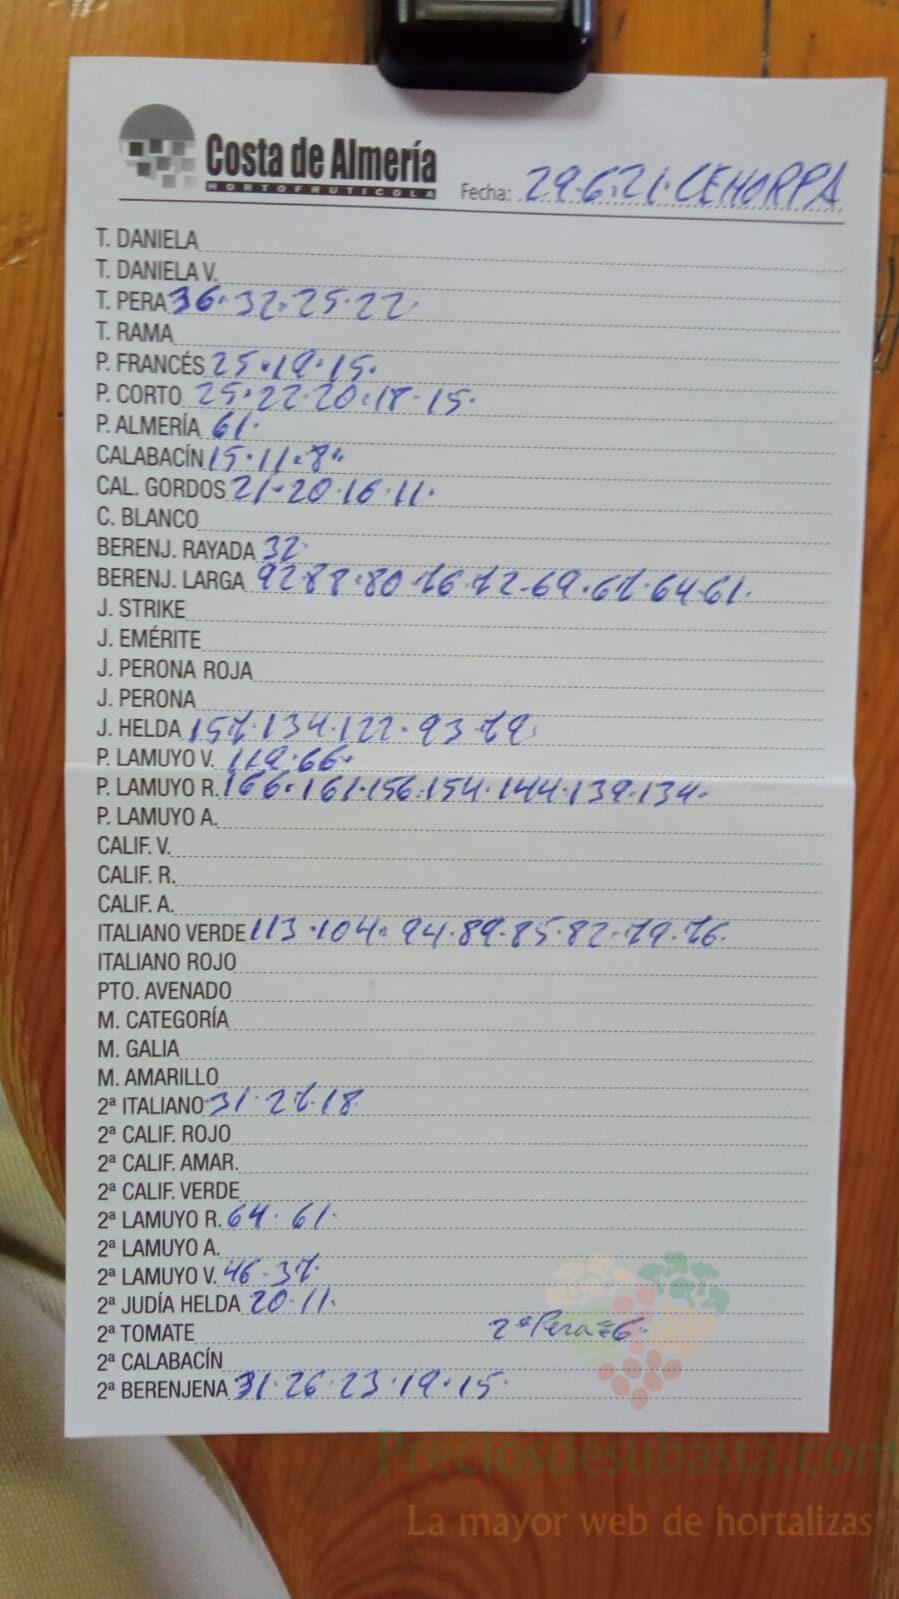 Costa de Almería
HORTOFRUTICOLA
Fecha: 29.6.21.CEHORPA
T. DANIELA
T. DANIELA V.
T. PERA 36.32.25.22
T. RAMA
P. FRANCÉS 25.19.15.
P. CORTO 25.22.20.18.15.
P. ALMERÍA 61.
CALABACÍN 15.11.8.
CAL. GORDOS 21.20.16.11.
C. BLANCO
BERENJ. RAYADA 32.
BERENJ. LARGA 92.88.80.76.72.69.67.64.61.
J. STRIKE
J. EMÉRITE
J. PERONA ROJA
J. PERONA
J. HELDA 157.134.122.93.79.
P. LAMUYO V. 119.66.
P. LAMUYO R. 166.161.156.154.144.139.134.
P. LAMUYO A.
CALIF. V.
CALIF. R.
CALIF. A.
ITALIANO VERDE 113.104.94.89.85.82.79.76.
ITALIANO ROJO
PTO. AVENADO
M. CATEGORÍA
M. GALIA
M. AMARILLO
2ª ITALIANO 31.27.18
2ª CALIF. ROJO
2ª CALIF. AMAR.
2ª CALIF. VERDE
2ª LAMUYO R. 64.61.
2ª LAMUYO A.
2ª LAMUYO V. 46.37
2ª JUDÍA HELDA 20.11.
2ª TOMATE 2ª Pera=6.
2ª CALABACÍN
2ª BERENJENA 31.26.23.19.15.
Preciosdesubasta.com
La mayor web de hortalizas